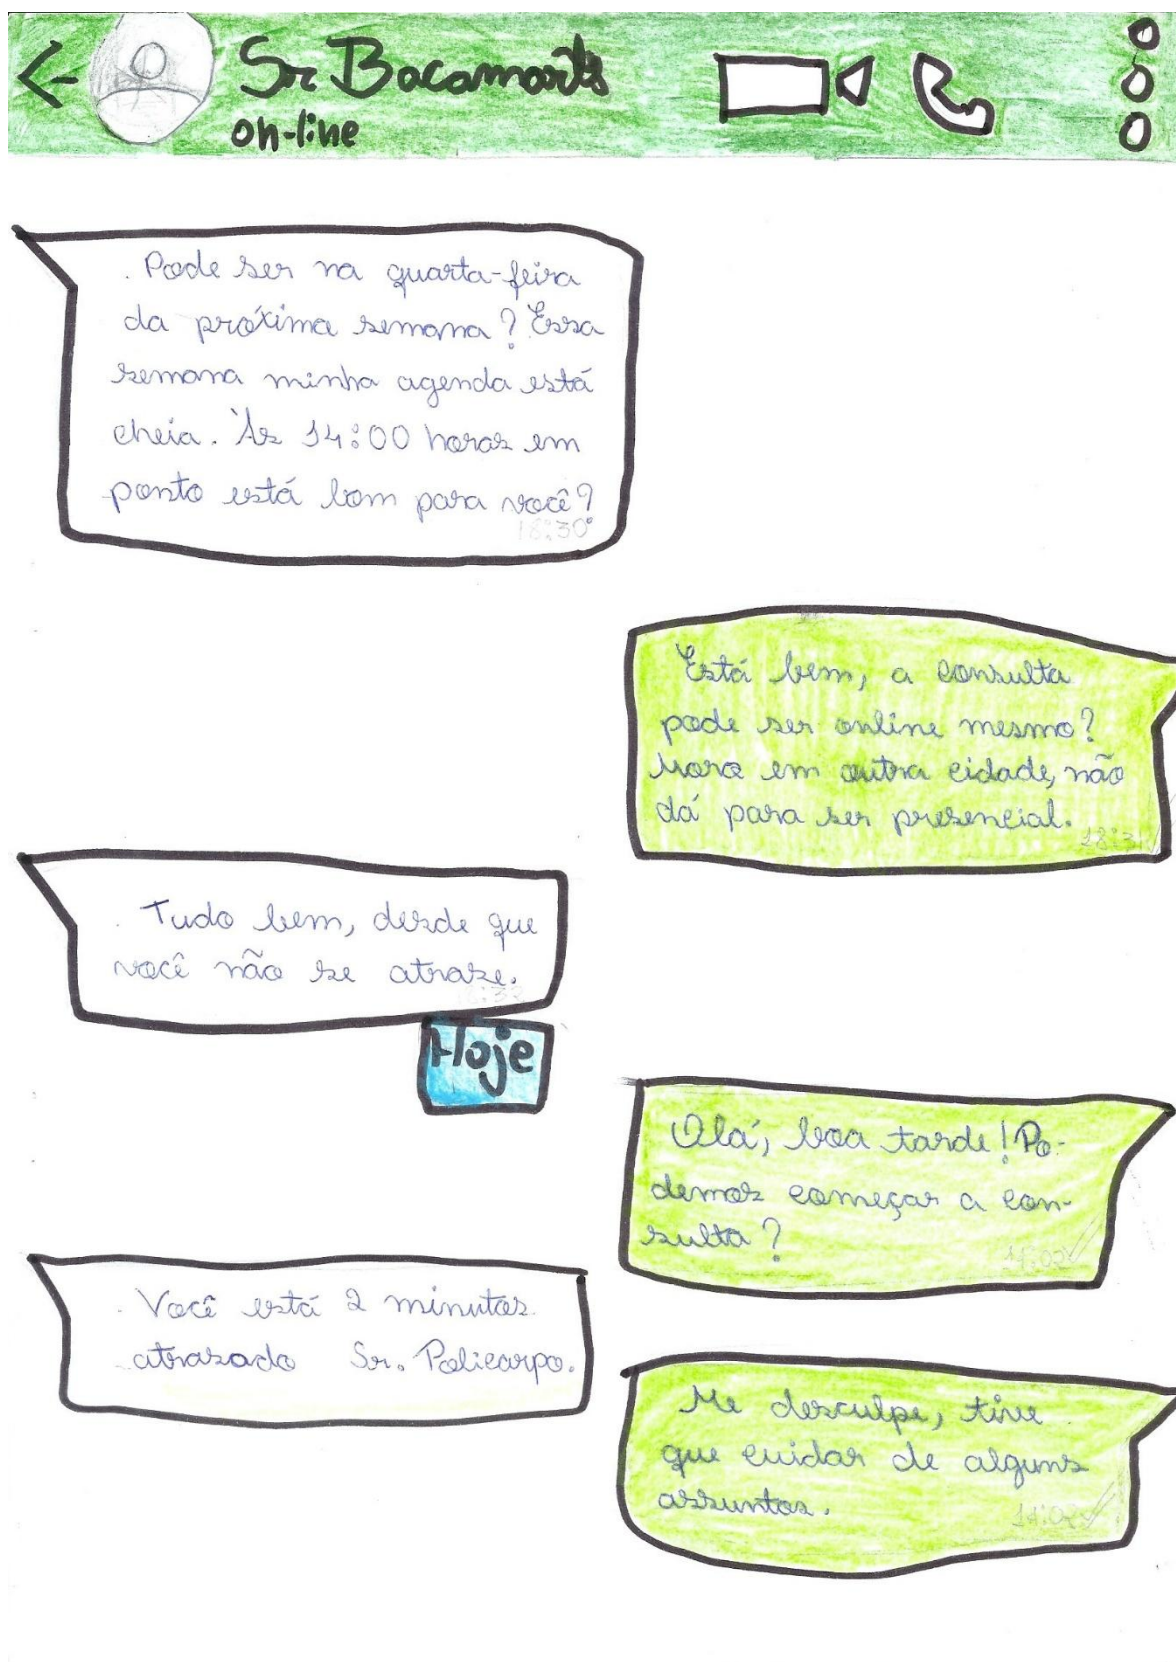 Sr. Bacamarte
on-line
Pode ser na quarta-feira
da próxima semana? Essa
semana minha agenda está
cheia. Às 14:00 horas em
ponto está bom para você?
18:30
Está bem, a consulta
pode ser online mesmo?
Moro em outra cidade, não
dá para ser presencial.
18:31
Tudo bem, desde que
você não se atrase.
Hoje
Olá, boa tarde! Po-
demos começar a con-
sulta?
14:02
Você está 2 minutos
atrasado Sr. Policarpo.
Me desculpe, tive
que cuidar de alguns
assuntos.
14:02